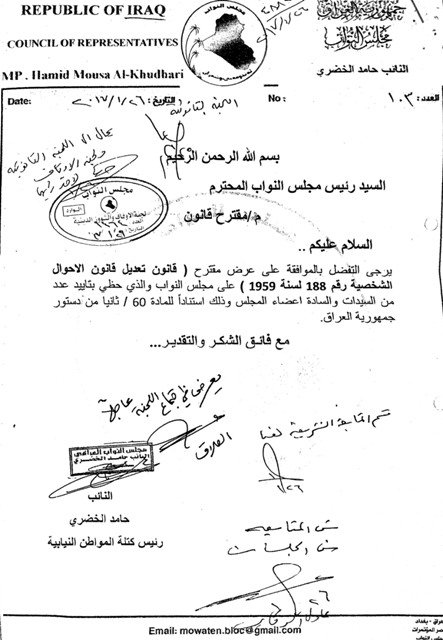 REPUBLIC OF IRAQ
COUNCIL OF REPRESENTATIVES
MP . Hamid Mousa Al-Khudhari
جمهورية العراق
مجلس النواب
النائب حامد الخضري
Date: ٢٠١٧/١/٢٦ التاريخ: No : العدد: ١٠٣
بسم الله الرحمن الرحيم
السيد رئيس مجلس النواب المحترم
م/مقترح قانون
السلام عليكم ..
يرجى التفضل بالموافقة على عرض مقترح ( قانون تعديل قانون الاحوال
الشخصية رقم 188 لسنة 1959 ) على مجلس النواب والذي حظي بتاييد عدد
من السيدات والسادة اعضاء المجلس وذلك استناداً للمادة 60 / ثانيا من دستور
جمهورية العراق.
مع فائق الشكر والتقدير...
مجلس النواب
لجنة الاوقاف والشؤون الدينية
يعرض في اجتماع اللجنة عاجلاً
مجلس النواب العراقي
النائب حامد الخضري
النائب
حامد الخضري
رئيس كتلة المواطن النيابية
١/٢٦
Email: mowaten.bloc@gmail.com